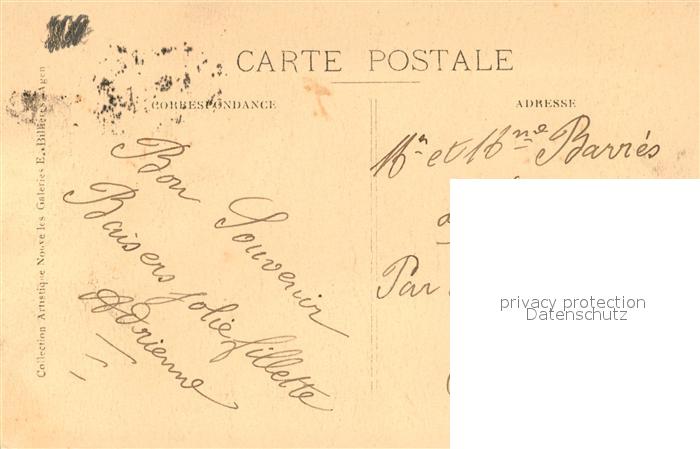 CARTE POSTALE
CORRESPONDANCE
ADRESSE
Collection Artistique Nouvelles Galeries E. Agen
Bon Souvenir
Baisers jolie fillette
Adrienne
Mr et Mme Barrés
Par
privacy protection
Datenschutz